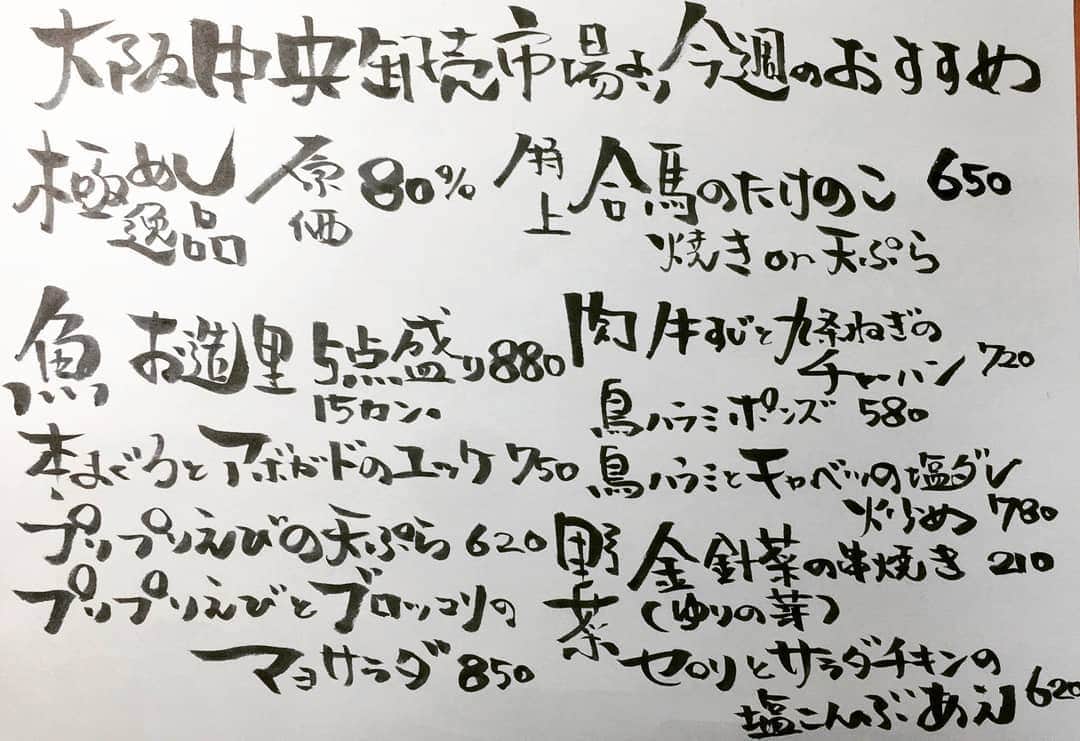 大阪中央卸売市場より今週のおすすめ
極めし逸品 原価80%以上 合馬のたけのこ 650
焼きor天ぷら
魚 お造里5点盛り880
15カン。
本まぐろとアボガドのユッケ 750
プリップリえびの天ぷら 620
プリップリえびとブロッコリの
マヨサラダ 850
肉 牛すじと九条ねぎの
チャーハン 720
鳥ハラミポンズ 580
鳥ハラミとキャベツの塩ダレ
炒め 780
野菜 金針菜の串焼き 210
(ゆりの芽)
セロリとサラダチキンの
塩こんぶあえ 620